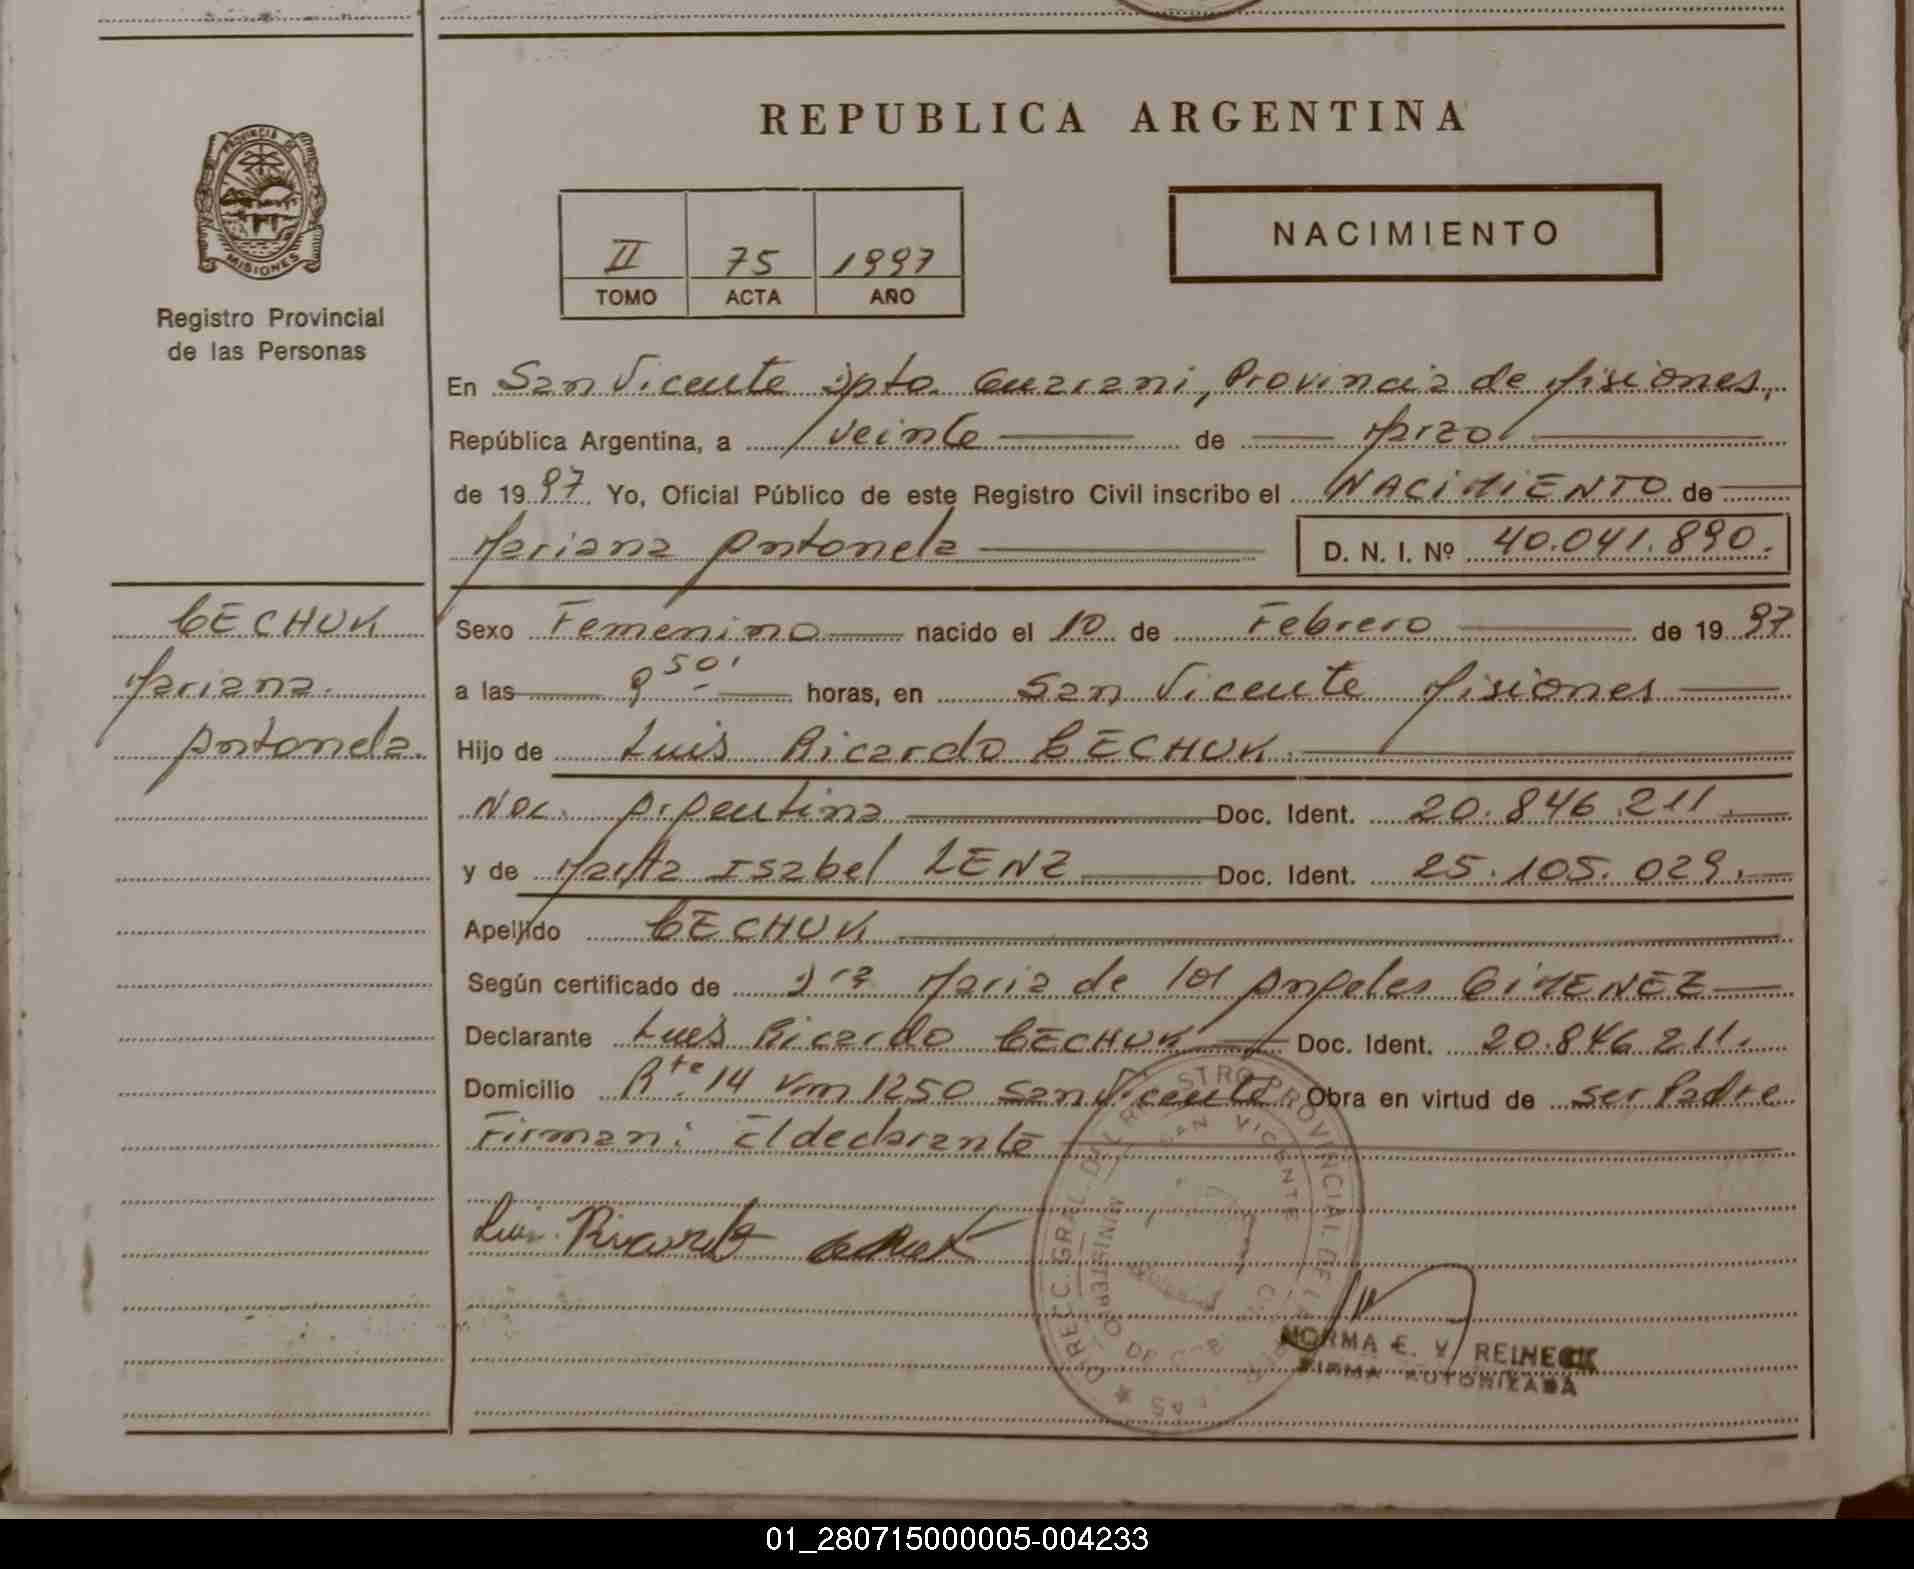 REPUBLICA ARGENTINA
PROVINCIA DE
MISIONES
Registro Provincial
de las Personas
II 75 1997
TOMO ACTA AÑO
NACIMIENTO
En San Vicente Dpto. Guarani, Provincia de Misiones,
República Argentina, a veinte de Marzo
de 1997. Yo, Oficial Público de este Registro Civil inscribo el NACIMIENTO de
Mariana Antonela D. N. I. Nº 40.041.890.
CECHUK
Mariana
Antonela.
Sexo Femenino nacido el 10 de Febrero de 1997
a las 9 50' horas, en San Vicente Misiones
Hijo de Luis Ricardo CECHUK.
Nac. Argentina Doc. Ident. 20.846.211.
y de Marta Isabel LENZ Doc. Ident. 25.105.029.
Apellido CECHUK
Según certificado de Dra Maria de los Angeles GIMENEZ
Declarante Luis Ricardo CECHUK Doc. Ident. 20.846.211.
Domicilio Rte. 14 Km 1250 San Vicente Obra en virtud de ser Padre
Firman: El declarante
Luis Ricardo
DIRECC. GRAL. DEL REGISTRO PROVINCIAL DE LAS
SAN VICENTE
MINISTERIO DE GOB
NORMA E. V. REINECK
FIRMA AUTORIZADA
01_280715000005-004233